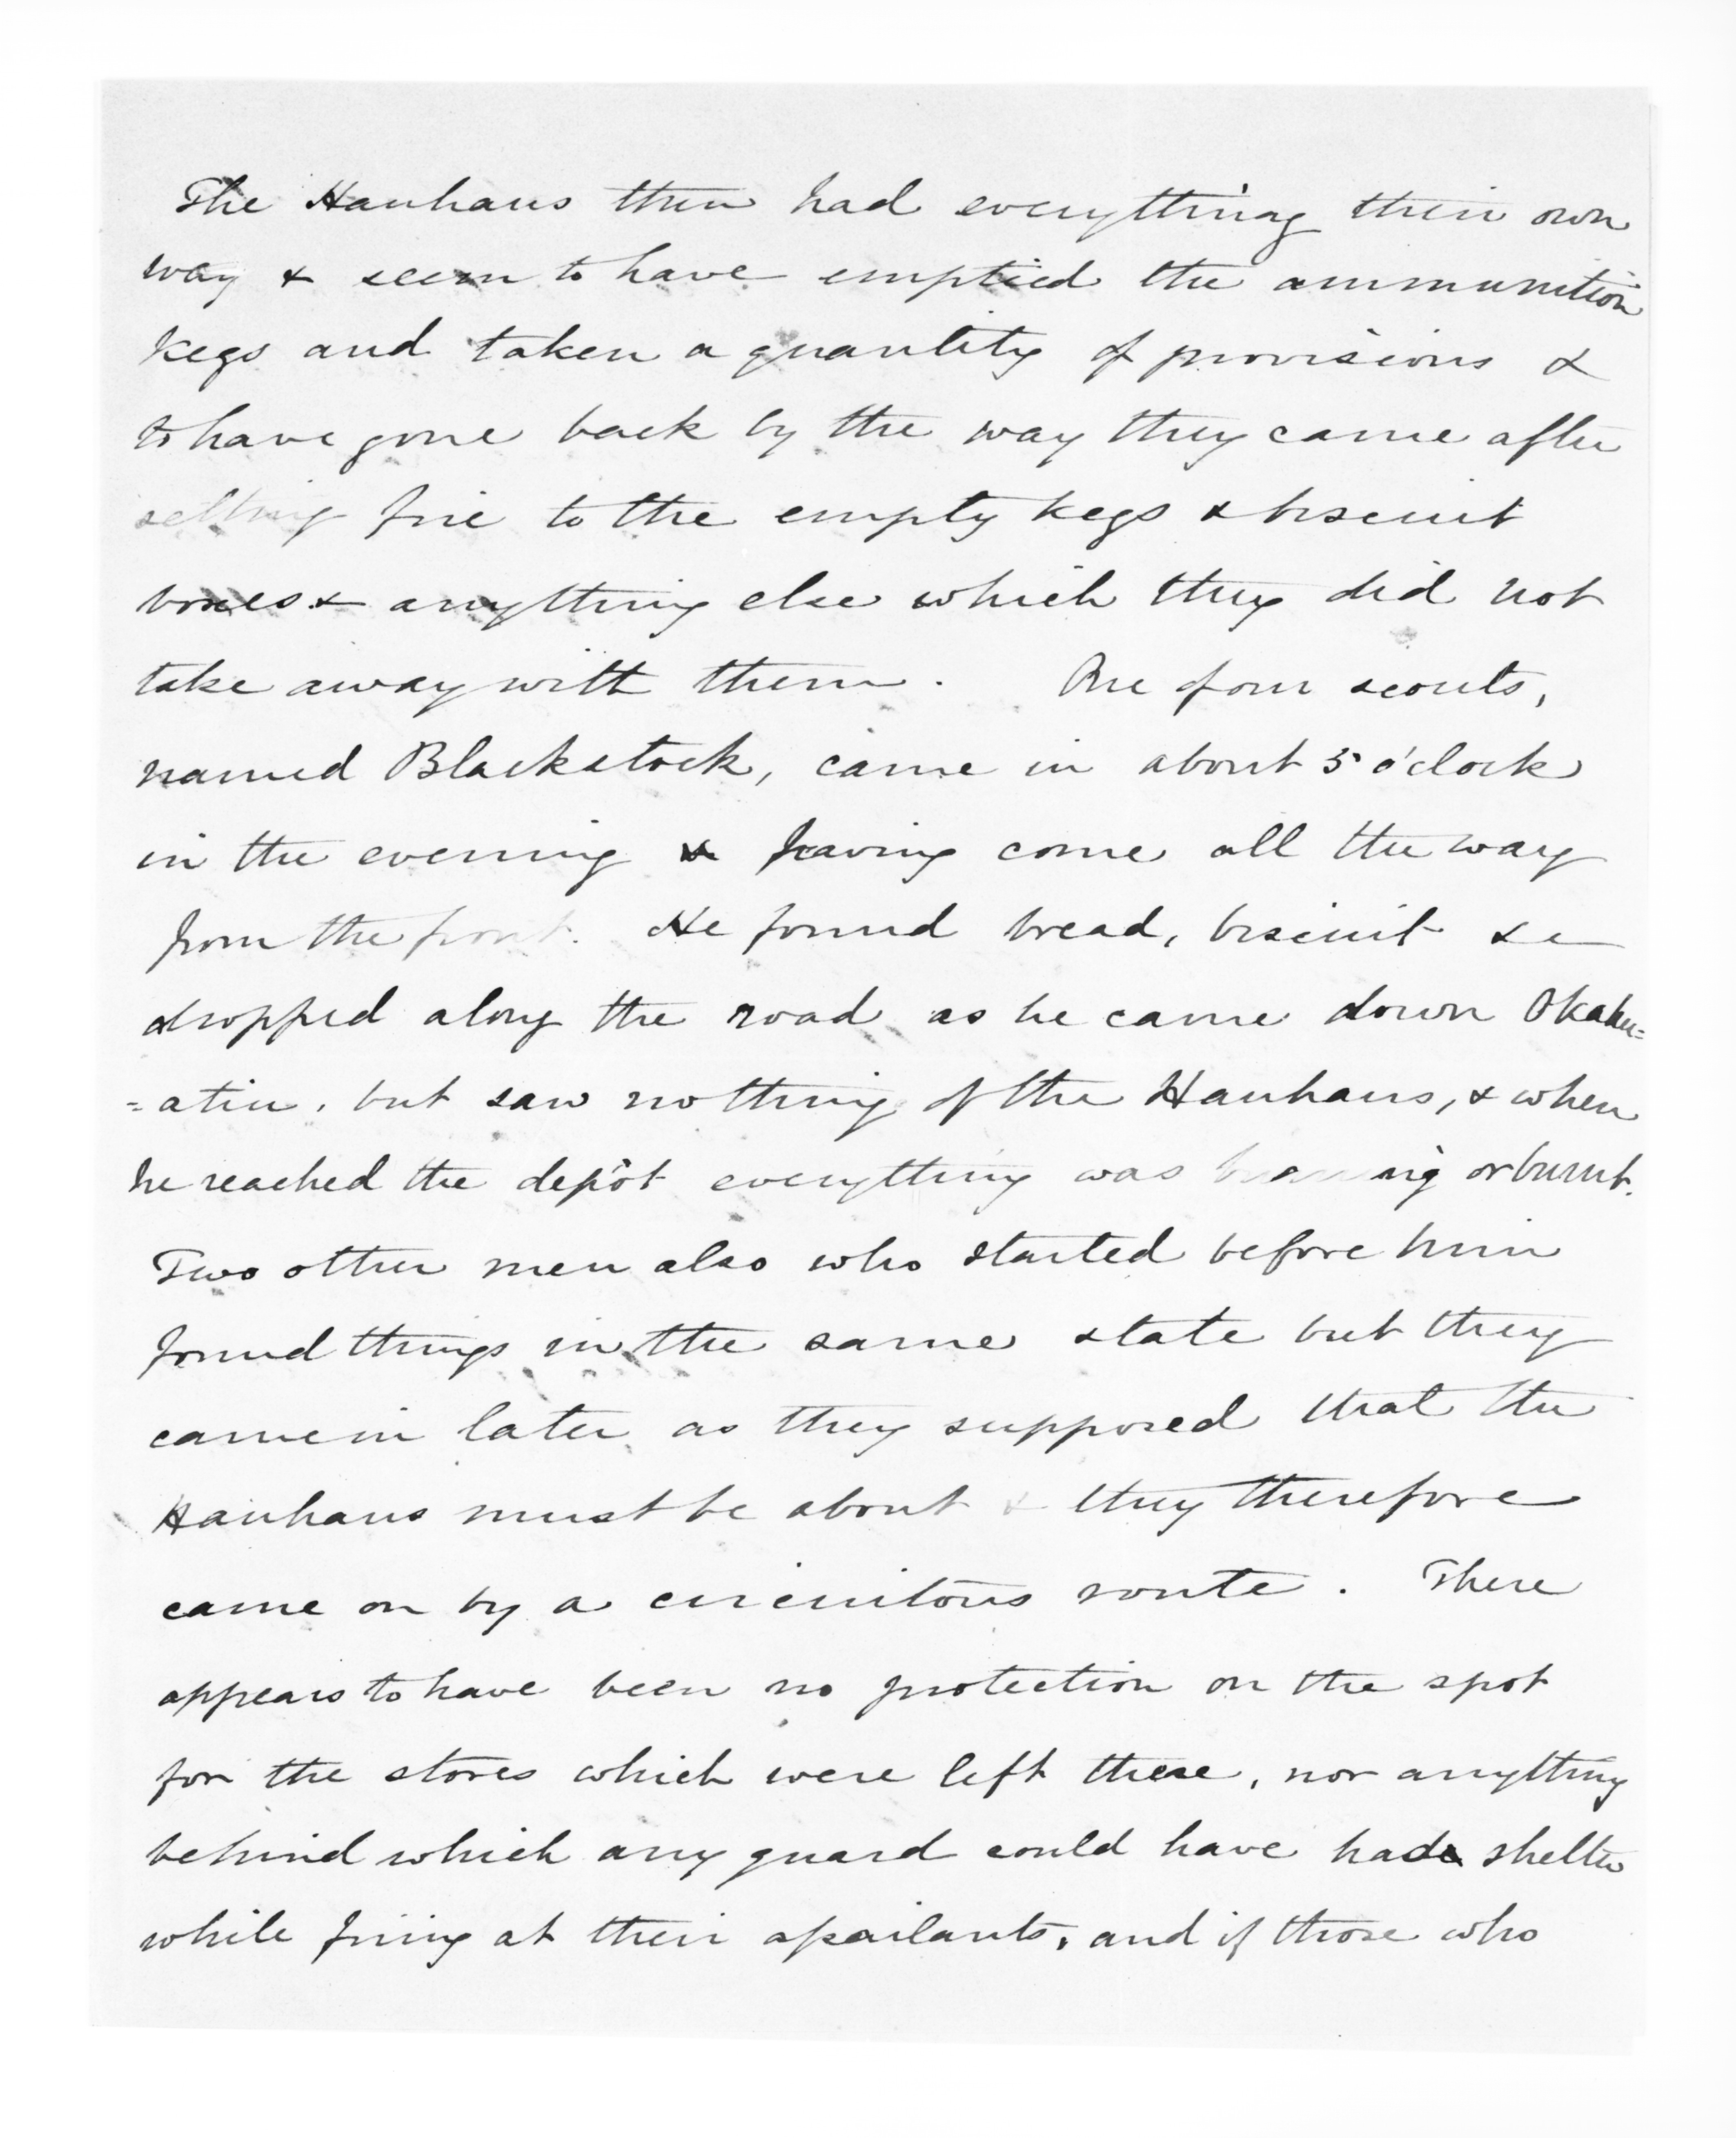 The Hauhaus then had everything their own
way & seem to have emptied the ammunition
kegs and taken a quantity of provisions &
to have gone back by the way they came after
setting fire to the empty kegs & biscuit
boxes & anything else which they did not
take away with them. One of our scouts,
named Blackstock, came in about 5 o'clock
in the evening having come all the way
from the front. He found bread, biscuit &c
dropped along the road as he came down Okahu=
=atiu, but saw nothing of the Hauhaus, & when
he reached the depôt everything was burning or burnt.
Two other men also who started before him
found things in the same state but they
came in later as they supposed that the
Hauhaus must be about & they therefore
came on by a circuitous route. There
appears to have been no protection on the spot
for the stores which were left there, nor anything
behind which any guard could have had shelter
while firing at their assailants, and if those who